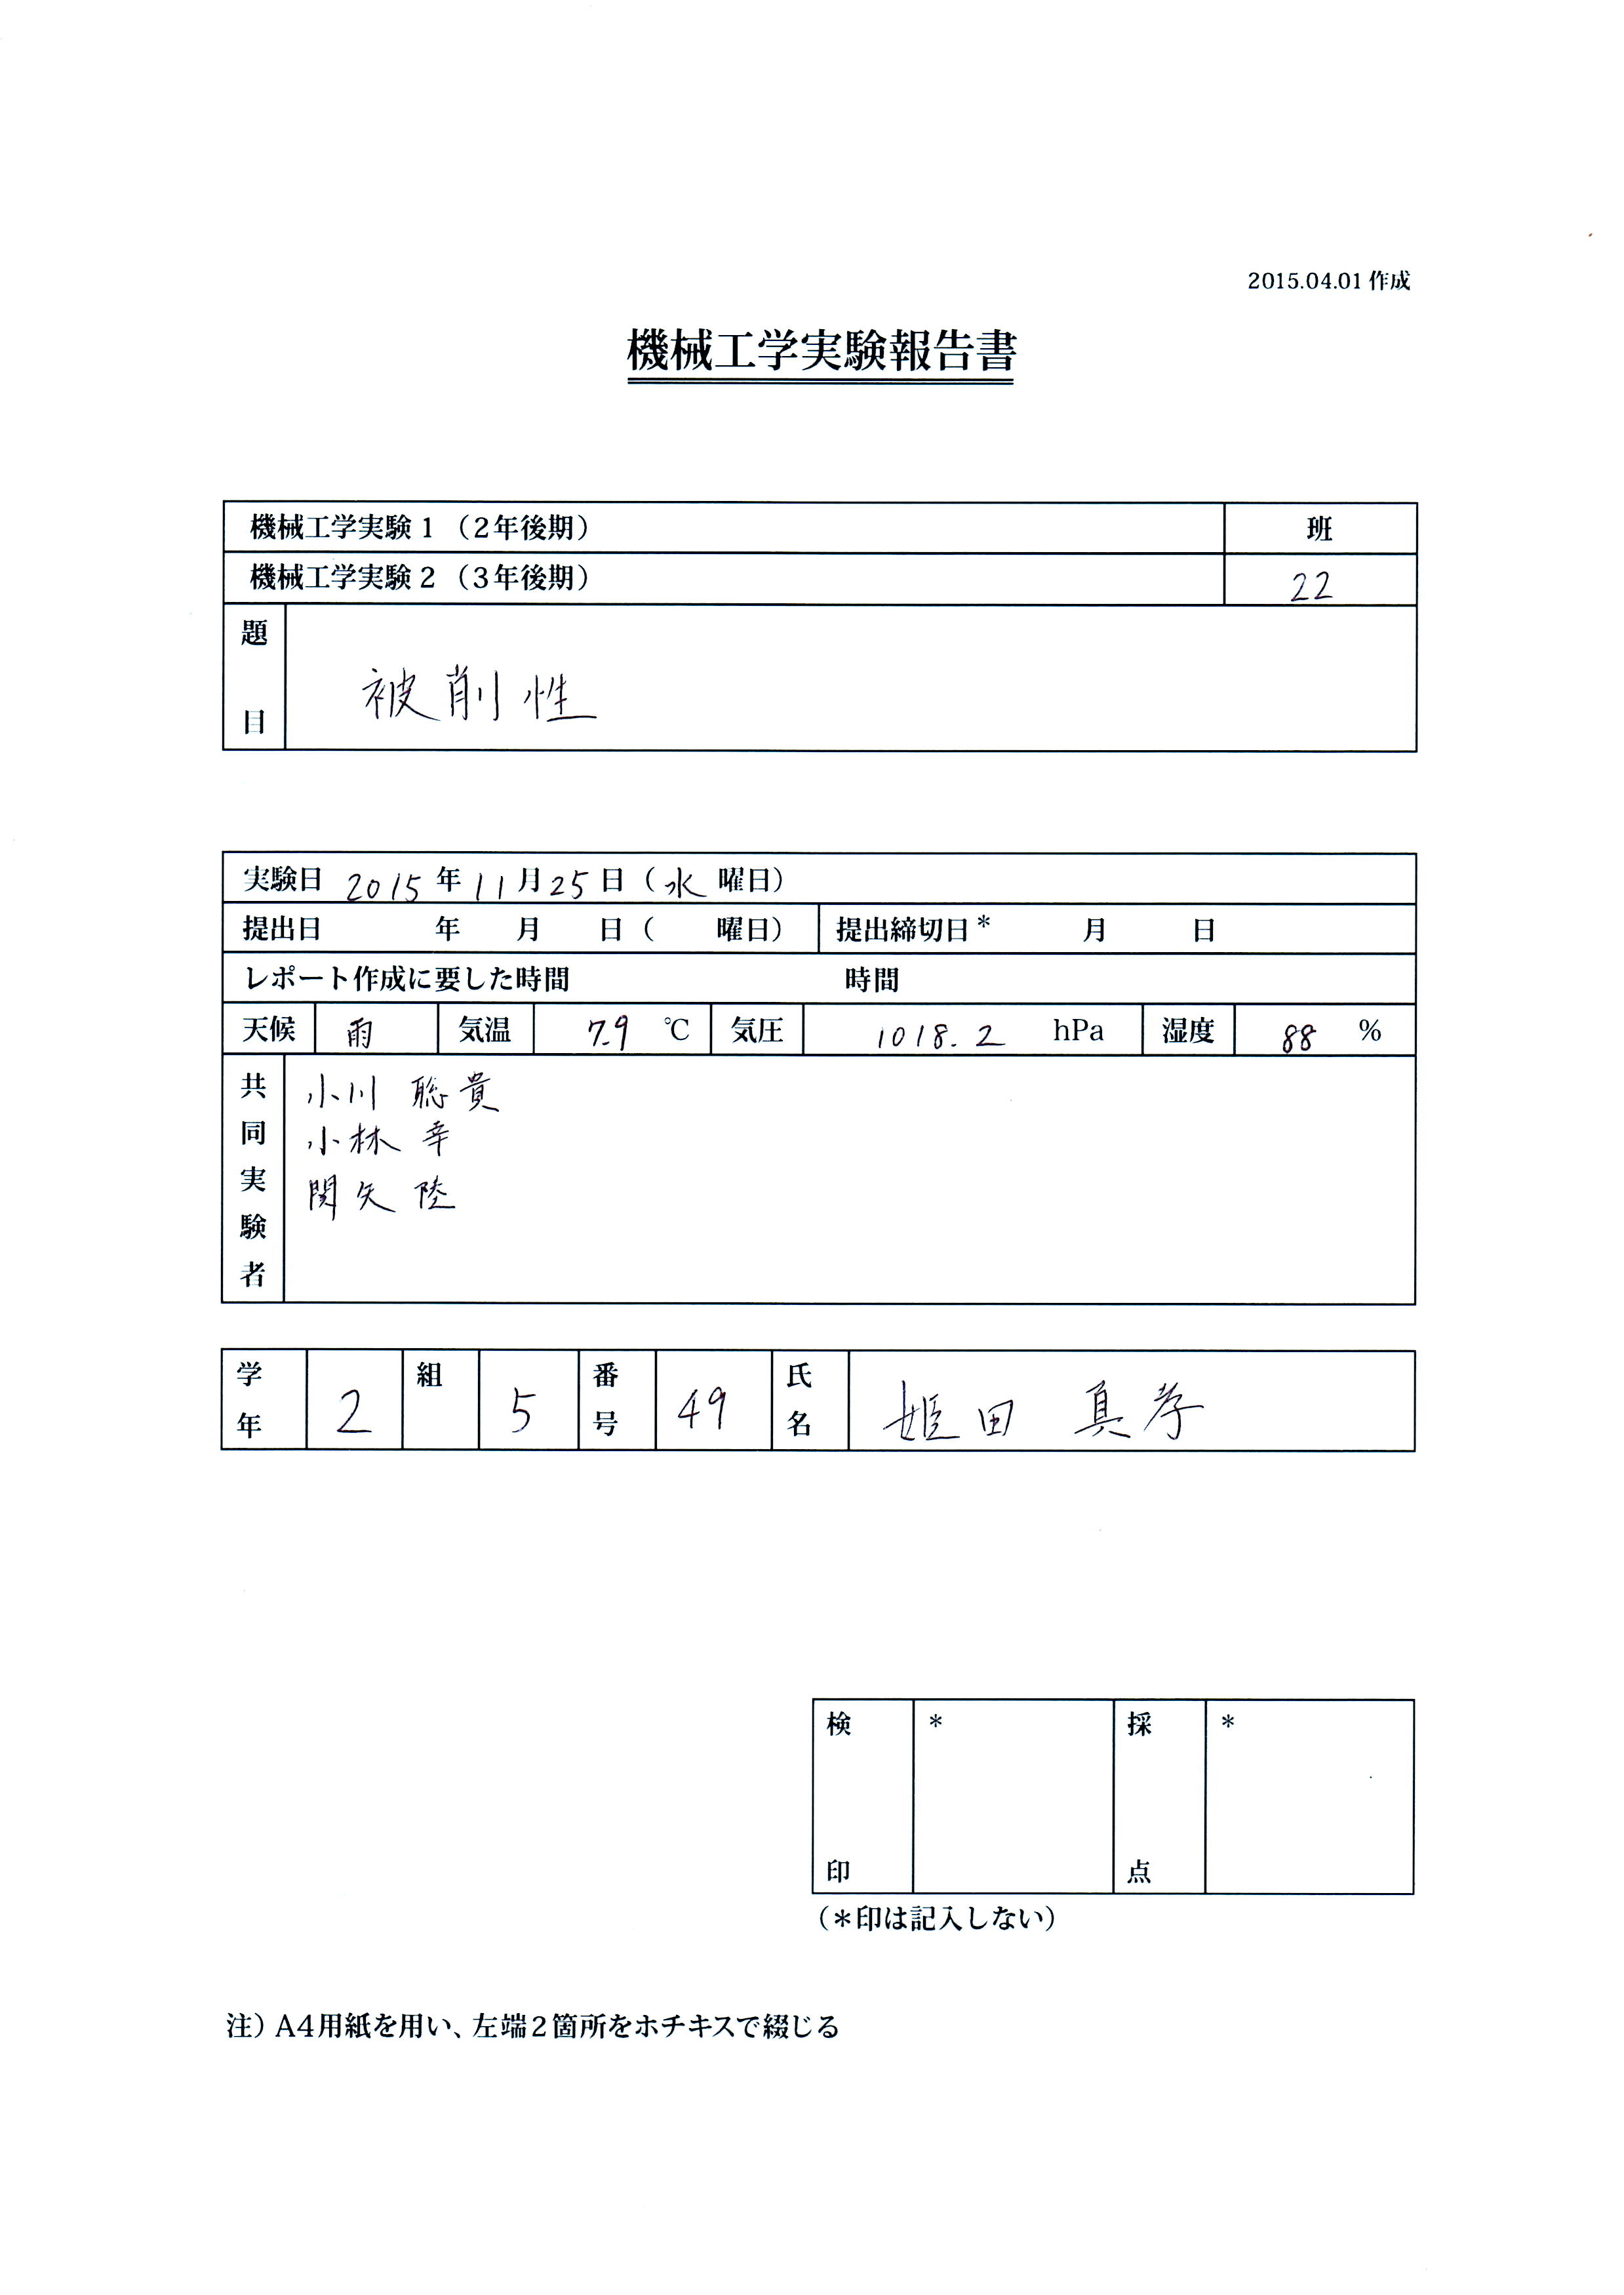 2015.04.01 作成
機械工学実験報告書
機械工学実験1（2年後期） 班
機械工学実験2（3年後期） 22
題目 被削性
実験日 2015 年 11 月 25 日（水 曜日）
提出日 年 月 日（ 曜日） 提出締切日* 月 日
レポート作成に要した時間 時間
天候 雨 気温 7.9 ℃ 気圧 1018.2 hPa 湿度 88 %
共同実験者 小川 聡貴
小林 幸
関矢 陸
学年 2 組 5 番号 49 氏名 姫田 真孝
検印 * 採点 *
（＊印は記入しない）
注）A4用紙を用い、左端2箇所をホチキスで綴じる